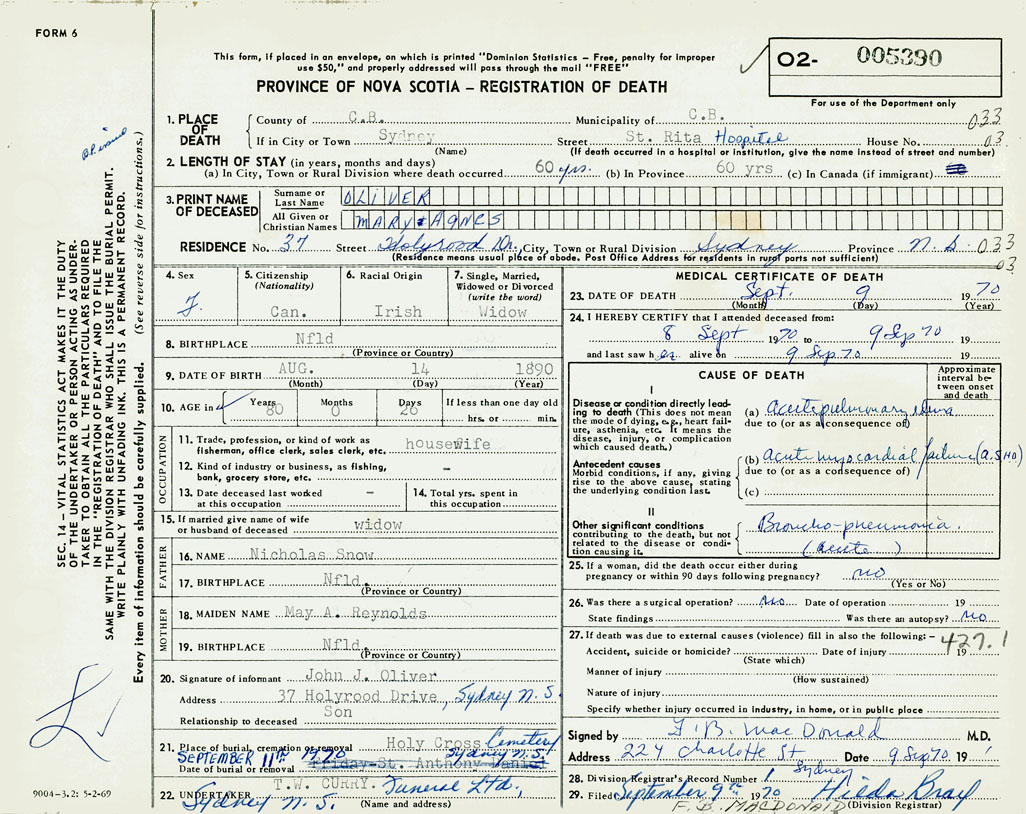 FORM 6
This form, if placed in an envelope, on which is printed "Dominion Statistics – Free, penalty for improper
use $50," and properly addressed will pass through the mail "FREE"
PROVINCE OF NOVA SCOTIA – REGISTRATION OF DEATH
O2- 005390
For use of the Department only
1. PLACE OF DEATH
County of C.B. Municipality of C.B. 033
If in City or Town Sydney Street St. Rita Hospital House No. 03
(Name) (If death occurred in a hospital or institution, give the name instead of street and number)
2. LENGTH OF STAY (in years, months and days)
(a) In City, Town or Rural Division where death occurred 60 yrs. (b) In Province 60 yrs (c) In Canada (if immigrant)
3. PRINT NAME OF DECEASED
Surname or Last Name OLIVER
All Given or Christian Names MARY AGNES
RESIDENCE No. 37 Street Holyrood Dr., City, Town or Rural Division Sydney Province N.S 033
(Residence means usual place of abode. Post Office Address for residents in rural parts not sufficient) 03
4. Sex F.
5. Citizenship (Nationality) Can.
6. Racial Origin Irish
7. Single, Married, Widowed or Divorced (write the word) Widow
8. BIRTHPLACE Nfld
(Province or Country)
9. DATE OF BIRTH AUG. 14 1890
(Month) (Day) (Year)
10. AGE in Years 80 Months 0 Days 26 If less than one day old hrs. or min.
OCCUPATION
11. Trade, profession, or kind of work as fisherman, office clerk, sales clerk, etc. housewife
12. Kind of industry or business, as fishing, bank, grocery store, etc. -
13. Date deceased last worked at this occupation -
14. Total yrs. spent in this occupation
15. If married give name of wife or husband of deceased widow
FATHER
16. NAME Nicholas Snow
17. BIRTHPLACE Nfld.
(Province or Country)
MOTHER
18. MAIDEN NAME May A. Reynolds
19. BIRTHPLACE Nfld.
(Province or Country)
20. Signature of informant John J. Oliver
Address 37 Holyrood Drive, Sydney N.S.
Relationship to deceased Son
21. Place of burial, cremation or removal Holy Cross Cemetery
SEPTEMBER 11TH 1970 Sydney N.S.
Date of burial or removal Friday-St. Anthony Daniel
22. UNDERTAKER T.W. CURRY. Funeral Ltd.,
Sydney N.S. (Name and address)
MEDICAL CERTIFICATE OF DEATH
23. DATE OF DEATH Sept. 9 1970
(Month) (Day) (Year)
24. I HEREBY CERTIFY that I attended deceased from:
8 Sept 1970 to 9 Sep 70
and last saw her alive on 9 Sep 70 19
CAUSE OF DEATH
Approximate interval between onset and death
I
Disease or condition directly leading to death (This does not mean the mode of dying, e.g., heart failure, asthenia, etc. It means the disease, injury, or complication which caused death.)
(a) Acute pulmonary edema
due to (or as a consequence of)
Antecedent causes
Morbid conditions, if any, giving rise to the above cause, stating the underlying condition last.
(b) Acute myocardial failure (A.S.H.D)
due to (or as a consequence of)
(c)
II
Other significant conditions contributing to the death, but not related to the disease or condition causing it.
Broncho-pneumonia.
(acute)
25. If a woman, did the death occur either during pregnancy or within 90 days following pregnancy? no
(Yes or No)
26. Was there a surgical operation? No Date of operation 19
State findings Was there an autopsy? No
27. If death was due to external causes (violence) fill in also the following:– 427.1
Accident, suicide or homicide? Date of injury 19
(State which)
Manner of injury
(How sustained)
Nature of injury
Specify whether injury occurred in industry, in home, or in public place
Signed by F.B. MacDonald M.D.
Address 224 Charlotte St Date 9 Sep 70 19
Sydney
28. Division Registrar's Record Number 1
29. Filed September 9th 1970 Hilda Bray
F. B. MACDONALD (Division Registrar)
SEC. 14 – VITAL STATISTICS ACT MAKES IT THE DUTY
OF THE UNDERTAKER OR PERSON ACTING AS UNDERTAKER
TO OBTAIN ALL THE PARTICULARS REQUIRED
IN THE "REGISTRATION OF DEATH" AND TO FILE THE
SAME WITH THE DIVISION REGISTRAR WHO SHALL ISSUE THE BURIAL PERMIT.
WRITE PLAINLY WITH UNFADING INK. THIS IS A PERMANENT RECORD.
Every item of information should be carefully supplied. (See reverse side for instructions.)
9004-3.2: 5-2-69